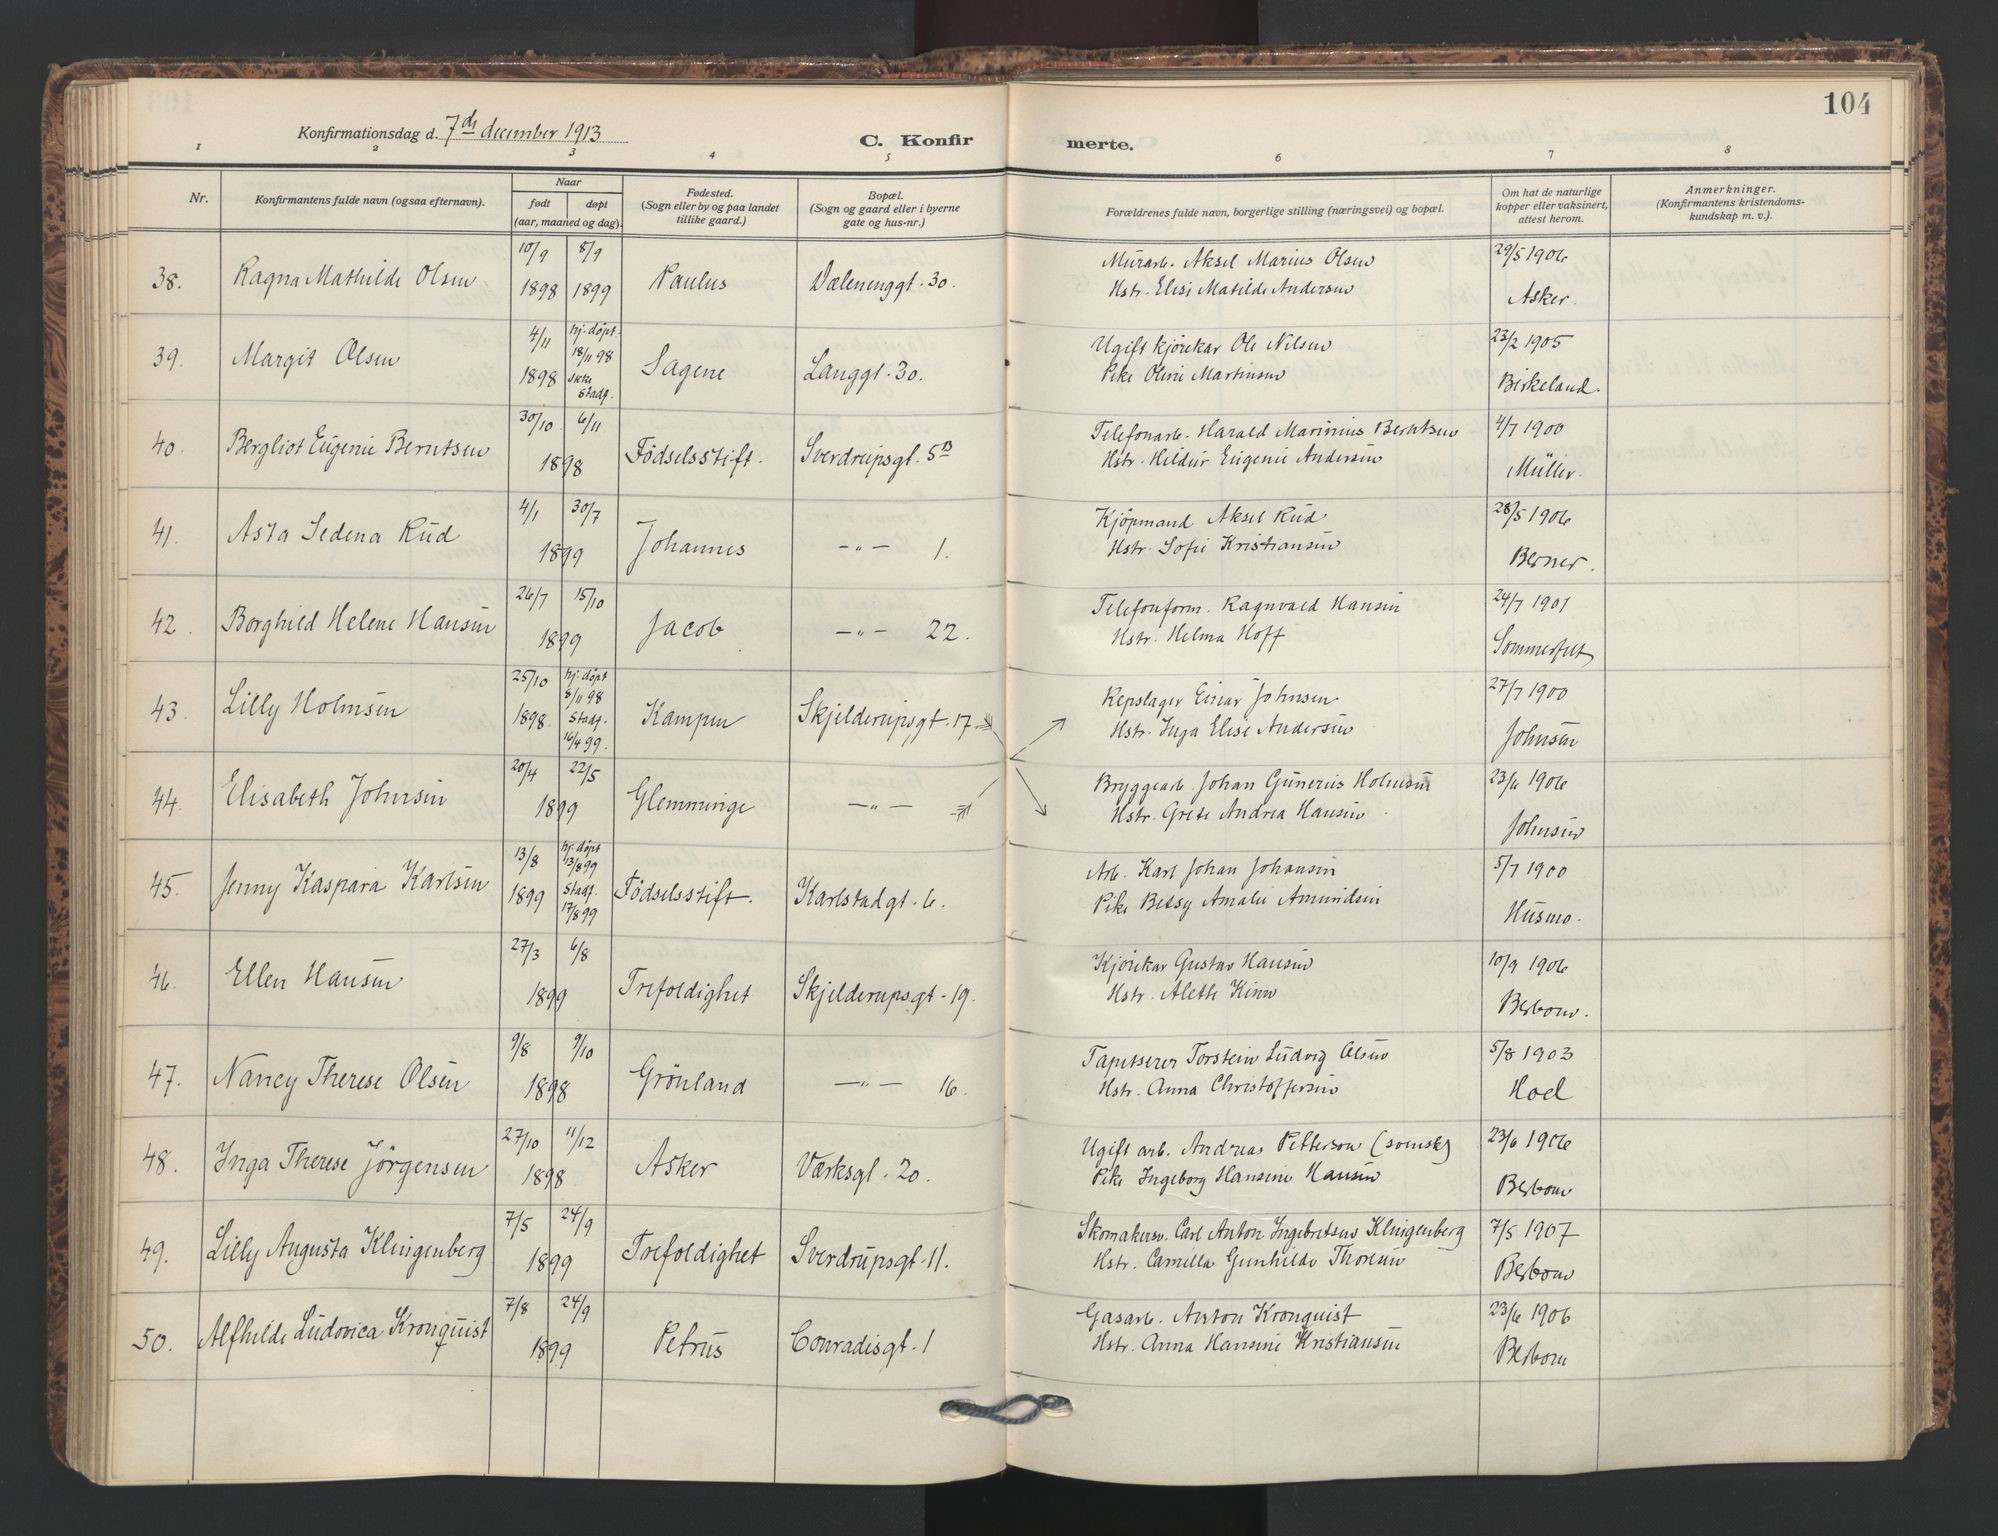 104
Konfirmationsdag d. 7de december 1913
C. Konfir merte.
1 2 3 4 5 6 7 8
Nr.
Konfirmantens fulde navn (ogsaa efternavn).
Naar
født døpt
(aar, maaned og dag).
Fødested.
(Sogn eller by og paa landet
tillike gaard.)
Bopæl.
(Sogn og gaard eller i byerne
gate og hus-nr.)
Forældrenes fulde navn, borgerlige stilling (næringsvei) og bopæl.
Om hat de naturlige
kopper eller vaksinert,
attest herom.
Anmerkninger.
(Konfirmantens kristendoms-
kundskap m. v.).
10/9 8/9 Murarb. Aksel Marius Olsen 29/5 1906
38. Ragna Mathilde Olsen 1898 1899 Paulus Dælenenggt. 30. Hstr. Elise Matilde Andersen Asker.
4/11 hj. døpt. 18/11 98 Ugift kjørekar Ole Nilsen 23/2 1905
39. Margit Olsen 1898 ikke stadf. Sagene Langgt. 30. Pike Oline Martinsen Birkeland.
30/10 6/11 Telefonarb. Harald Marinius Berntsen 4/7 1900
40. Bergliot Eugenie Berntsen 1898 Födselsstift. Sverdrupsgt. 5B Hstr. Hildur Eugenie Andersen Müller.
4/1 30/7 Kjøpmand Aksel Rud 28/5 1906
41. Asta Sedena Rud 1899 Johannes —„— 1. Hstr. Sofie Kristiansen Berner.
26/7 15/10 Telefonform. Ragnvald Hansen 24/7 1901
42. Borghild Helene Hansen 1899 Jacob —„— 22. Hstr. Helma Hoff Sommerfelt
25/10 hj. døpt 8/11 98 Repslager Einar Johnsen 27/7 1900
43. Lilly Holmsen 1898. Stadf. 16/4 99. Kampen Skjelderupsgt. 17. Hstr. Inga Elise Andersen Johnsen
20/4 22/5 Bryggearb. Johan Gunerius Holmsen 23/6 1906
44. Elisabeth Johnsen 1899 Glemminge —„— Hstr. Grete Andrea Hansen Johnsen
13/8 hj. døpt 13/8 99 Arb. Karl Johan Johansen 5/7 1900
45. Jenny Kaspara Karlsen 1899 Stadf. 17/8 99 Födselsstift. Karlstadgt. 6. Pike Betsy Amalie Amundsen Husmo.
27/3 6/8 Kjørekar Gustav Hansen 10/9 1906
46. Ellen Hansen 1899 Trefoldighet Skjelderupsgt. 19. Hstr. Alette Kinn Besbom.
9/8 9/10 Tapetserer Torstein Ludvig Olsen 5/8 1903
47. Nancy Therese Olsen 1898 Grönland —„— 16. Hstr. Anna Christoffersen Hoel
27/10 11/12 Ugift arb. Andreas Petterson (svensk) 23/6 1906
48. Inga Therese Jörgensen 1898 Asker Værksgt. 20. Pike Ingeborg Hansine Hansen Besbom
7/5 24/9 Skomakersv. Carl Anton Ingebretsen Klingenberg 7/5 1907
49. Lilly Augusta Klingenberg 1899 Trefoldighet Sverdrupsgt. 11. Hstr. Camilla Gunhilde Thoresen Besbom
7/8 24/9 Gasarb. Anton Kronquist 23/6 1906
50. Alfhilde Ludovica Kronquist 1899 Petrus Conradisgt. 1 Hstr. Anna Hansine Kristiansen Besbom